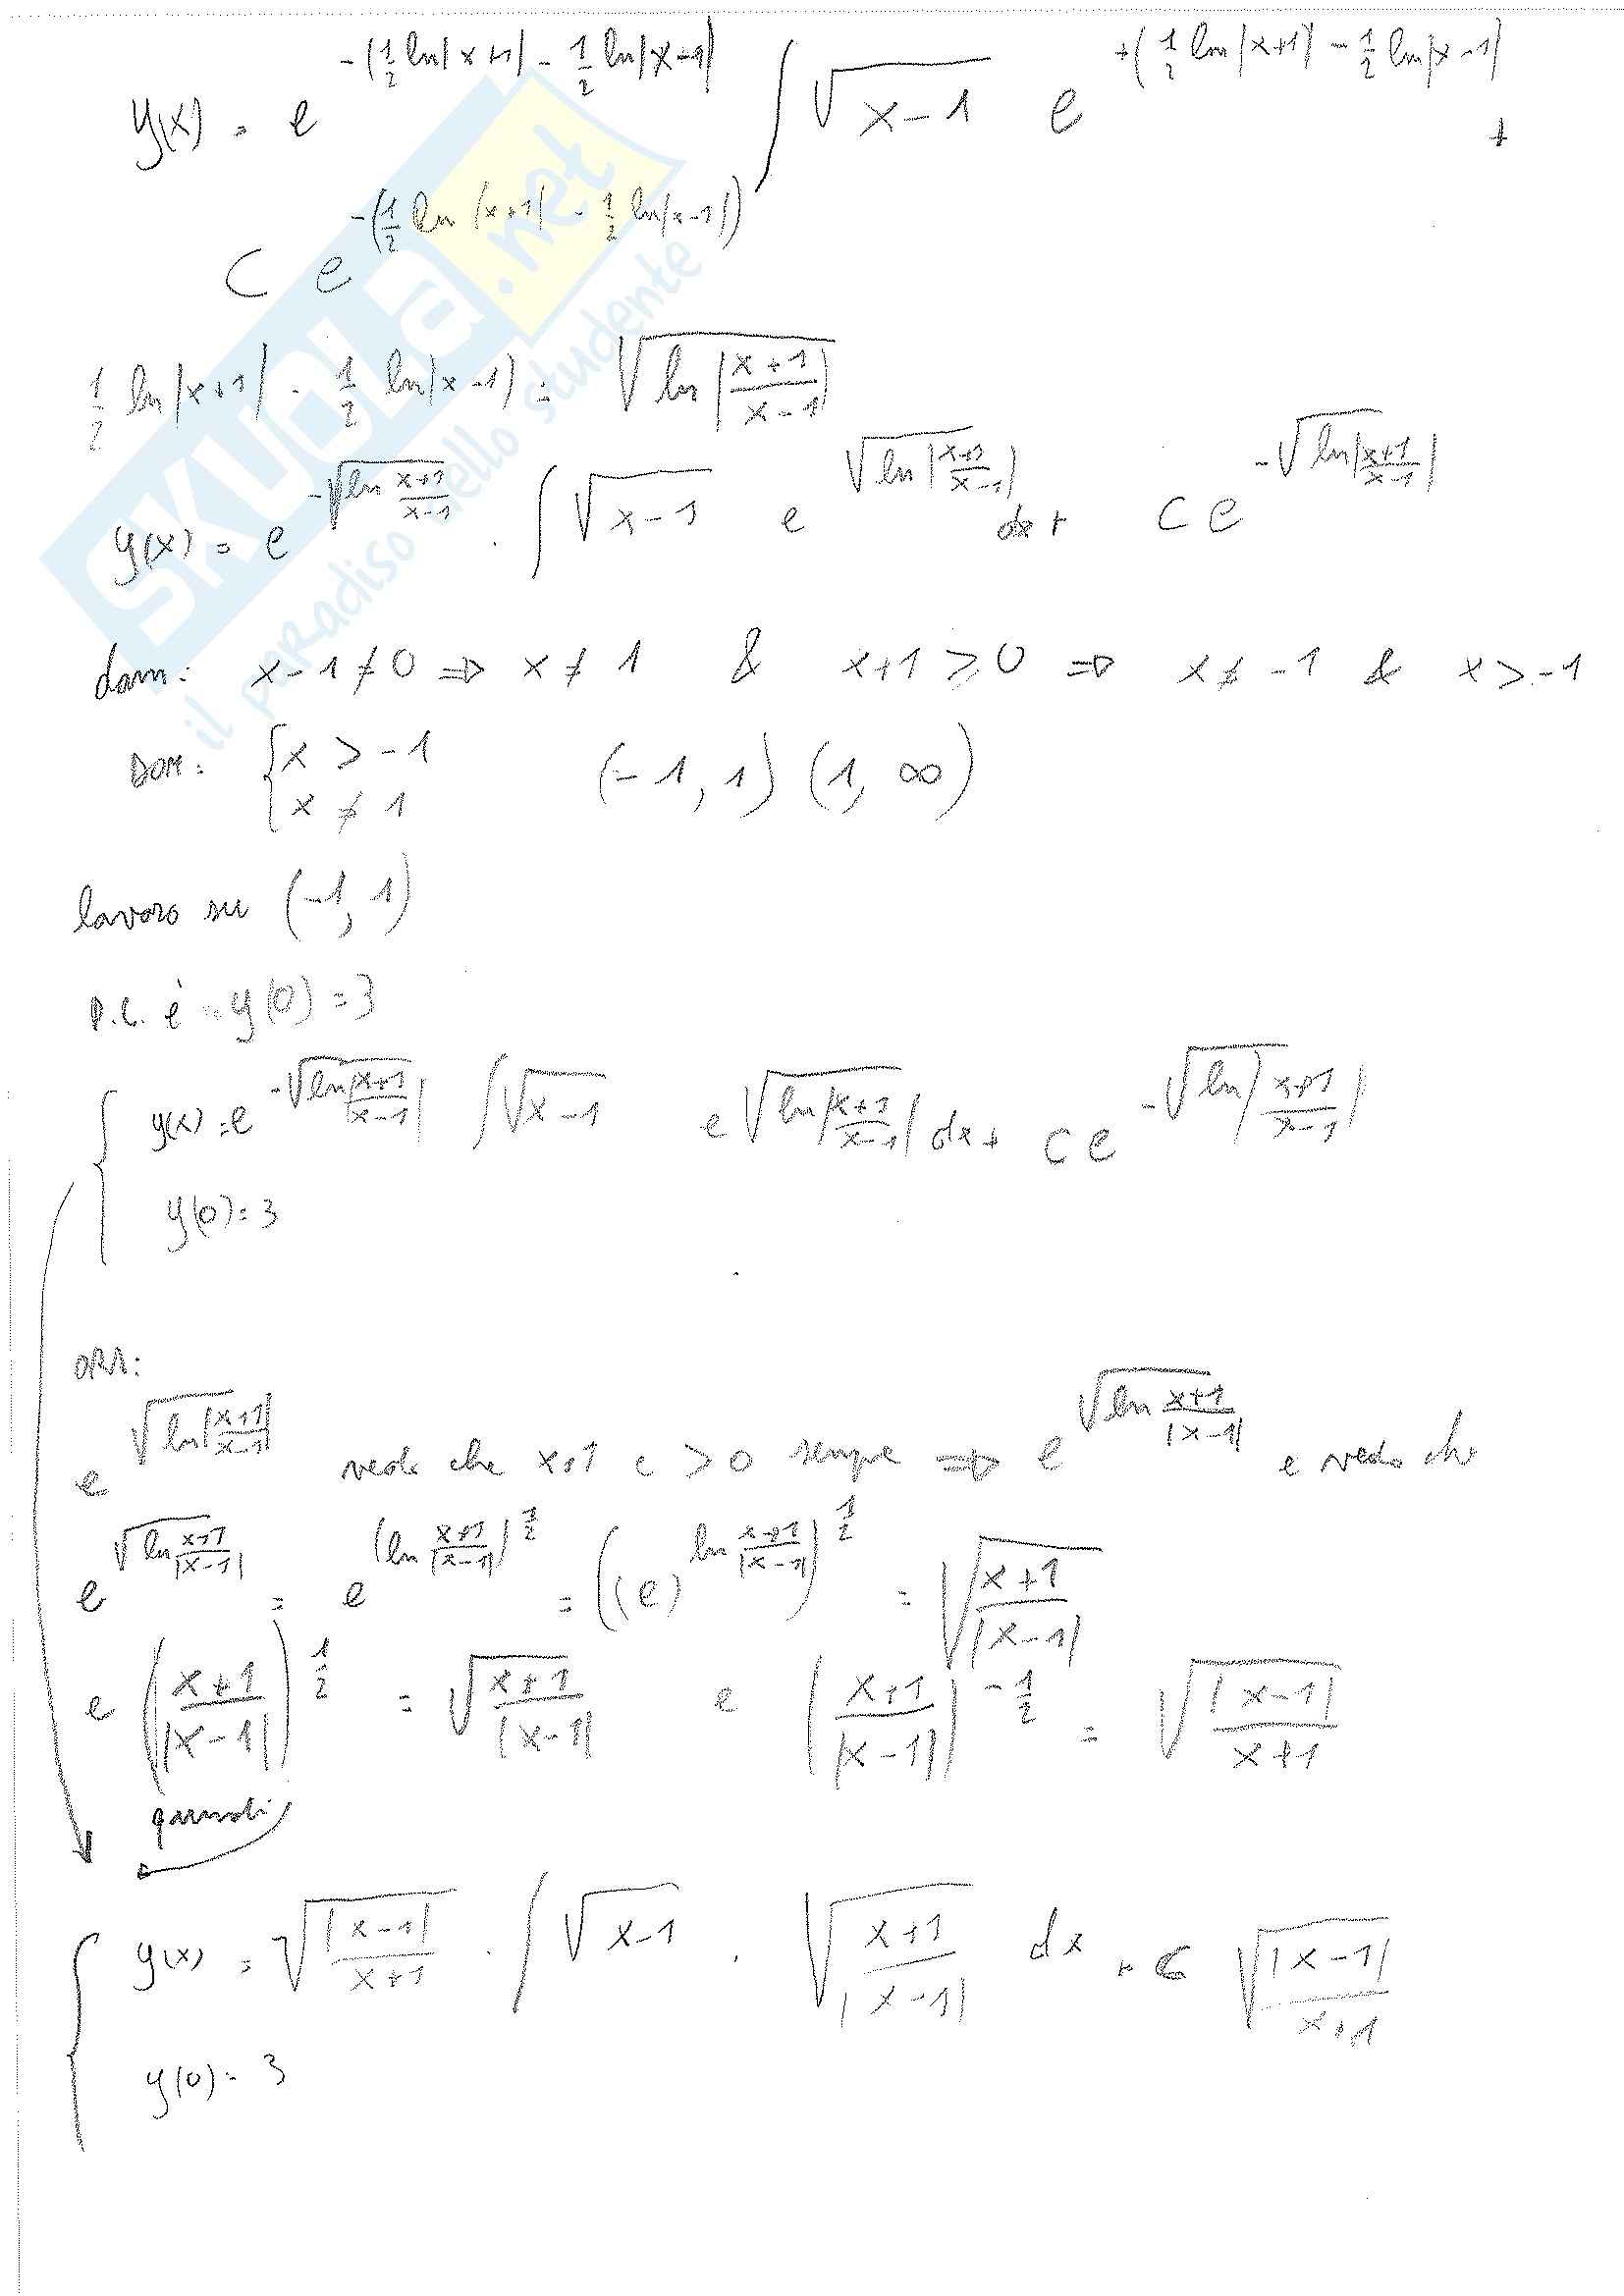 y(x) = e^{-(½ ln|x+1| - ½ ln|x+1|} ∫ √(x-1) e^{+(½ ln|x+1| - ½ ln|x-1|} +
C e^{-(½ ln|x+1| - ½ ln|x-1|)}
½ ln|x+1| - ½ ln|x-1) = √(ln|(x+1)/(x-1)|)
y(x) = e^{-√(ln (x+1)/(x-1))} · ∫ √(x-1) e^{√(ln|(x+1)/(x-1)|)} dx + C e^{-√(ln|(x+1)/(x-1)|)}
dom: x-1≠0 ⇒ x≠1 & x+1 ⩾ 0 ⇒ x≠-1 & x>-1
DOM: { x > -1
x ≠ 1 (-1, 1) (1, ∞)
lavoro su (-1, 1)
P.C. è y(0)=3
{ y(x) = e^{-√(ln|(x+1)/(x-1)|)} ∫ √(x-1) e^{√(ln|(x+1)/(x-1)|)} dx + C e^{-√(ln|(x+1)/(x-1)|)}
y(0)=3
ORA:
e^{√(ln|(x+1)/(x-1)|)} vedo che x+1 è >0 sempre ⇒ e^{√(ln (x+1)/|x-1|)} e vedo che
e^{√(ln (x+1)/|x-1|)} = e^{(ln (x+1)/|x-1|)^{1/2}} = ((e)^{ln (x+1)/|x-1|})^{1/2} = √((x+1)/|x-1|)
e ((x+1)/|x-1|)^{1/2} = √((x+1)/|x-1|) e ((x+1)/|x-1|)^{-1/2} = √(|x-1|/(x+1))
quindi
{ y(x) = √(|x-1|/(x+1)) · ∫ √(x-1) · √((x+1)/|x-1|) dx + C √(|x-1|/(x+1))
y(0)=3
SKUOLa.net
il paradiso dello studente